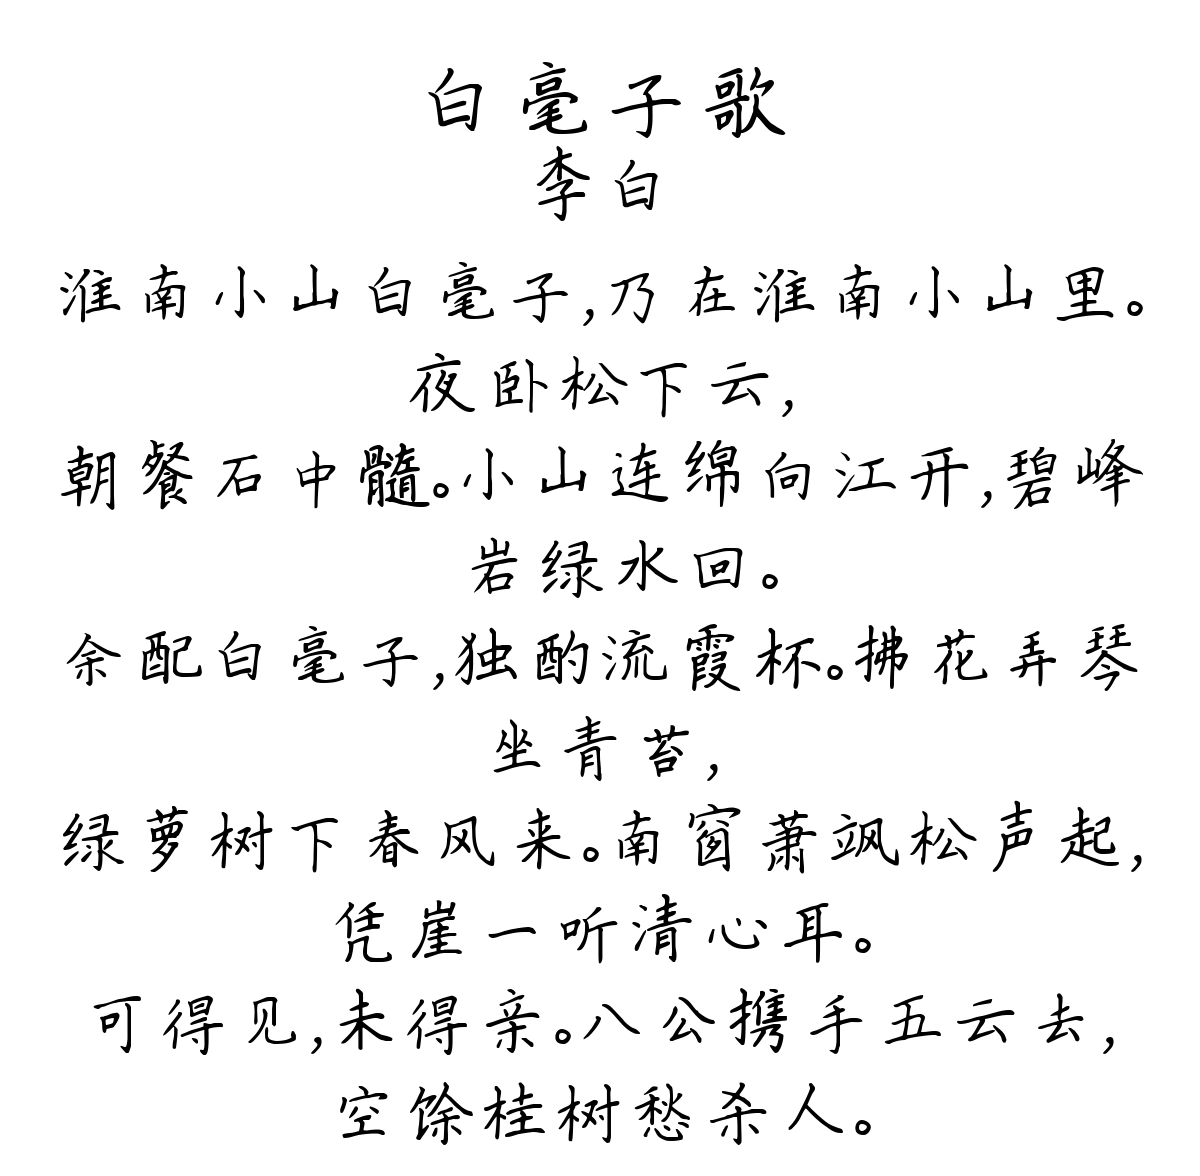 白毫子歌
李白
淮南小山白毫子,乃在淮南小山里。
夜卧松下云,
朝餐石中髓。小山连绵向江开,碧峰
岩绿水回。
余配白毫子,独酌流霞杯。拂花弄琴
坐青苔,
绿萝树下春风来。南窗萧飒松声起,
凭崖一听清心耳。
可得见,未得亲。八公携手五云去,
空馀桂树愁杀人。